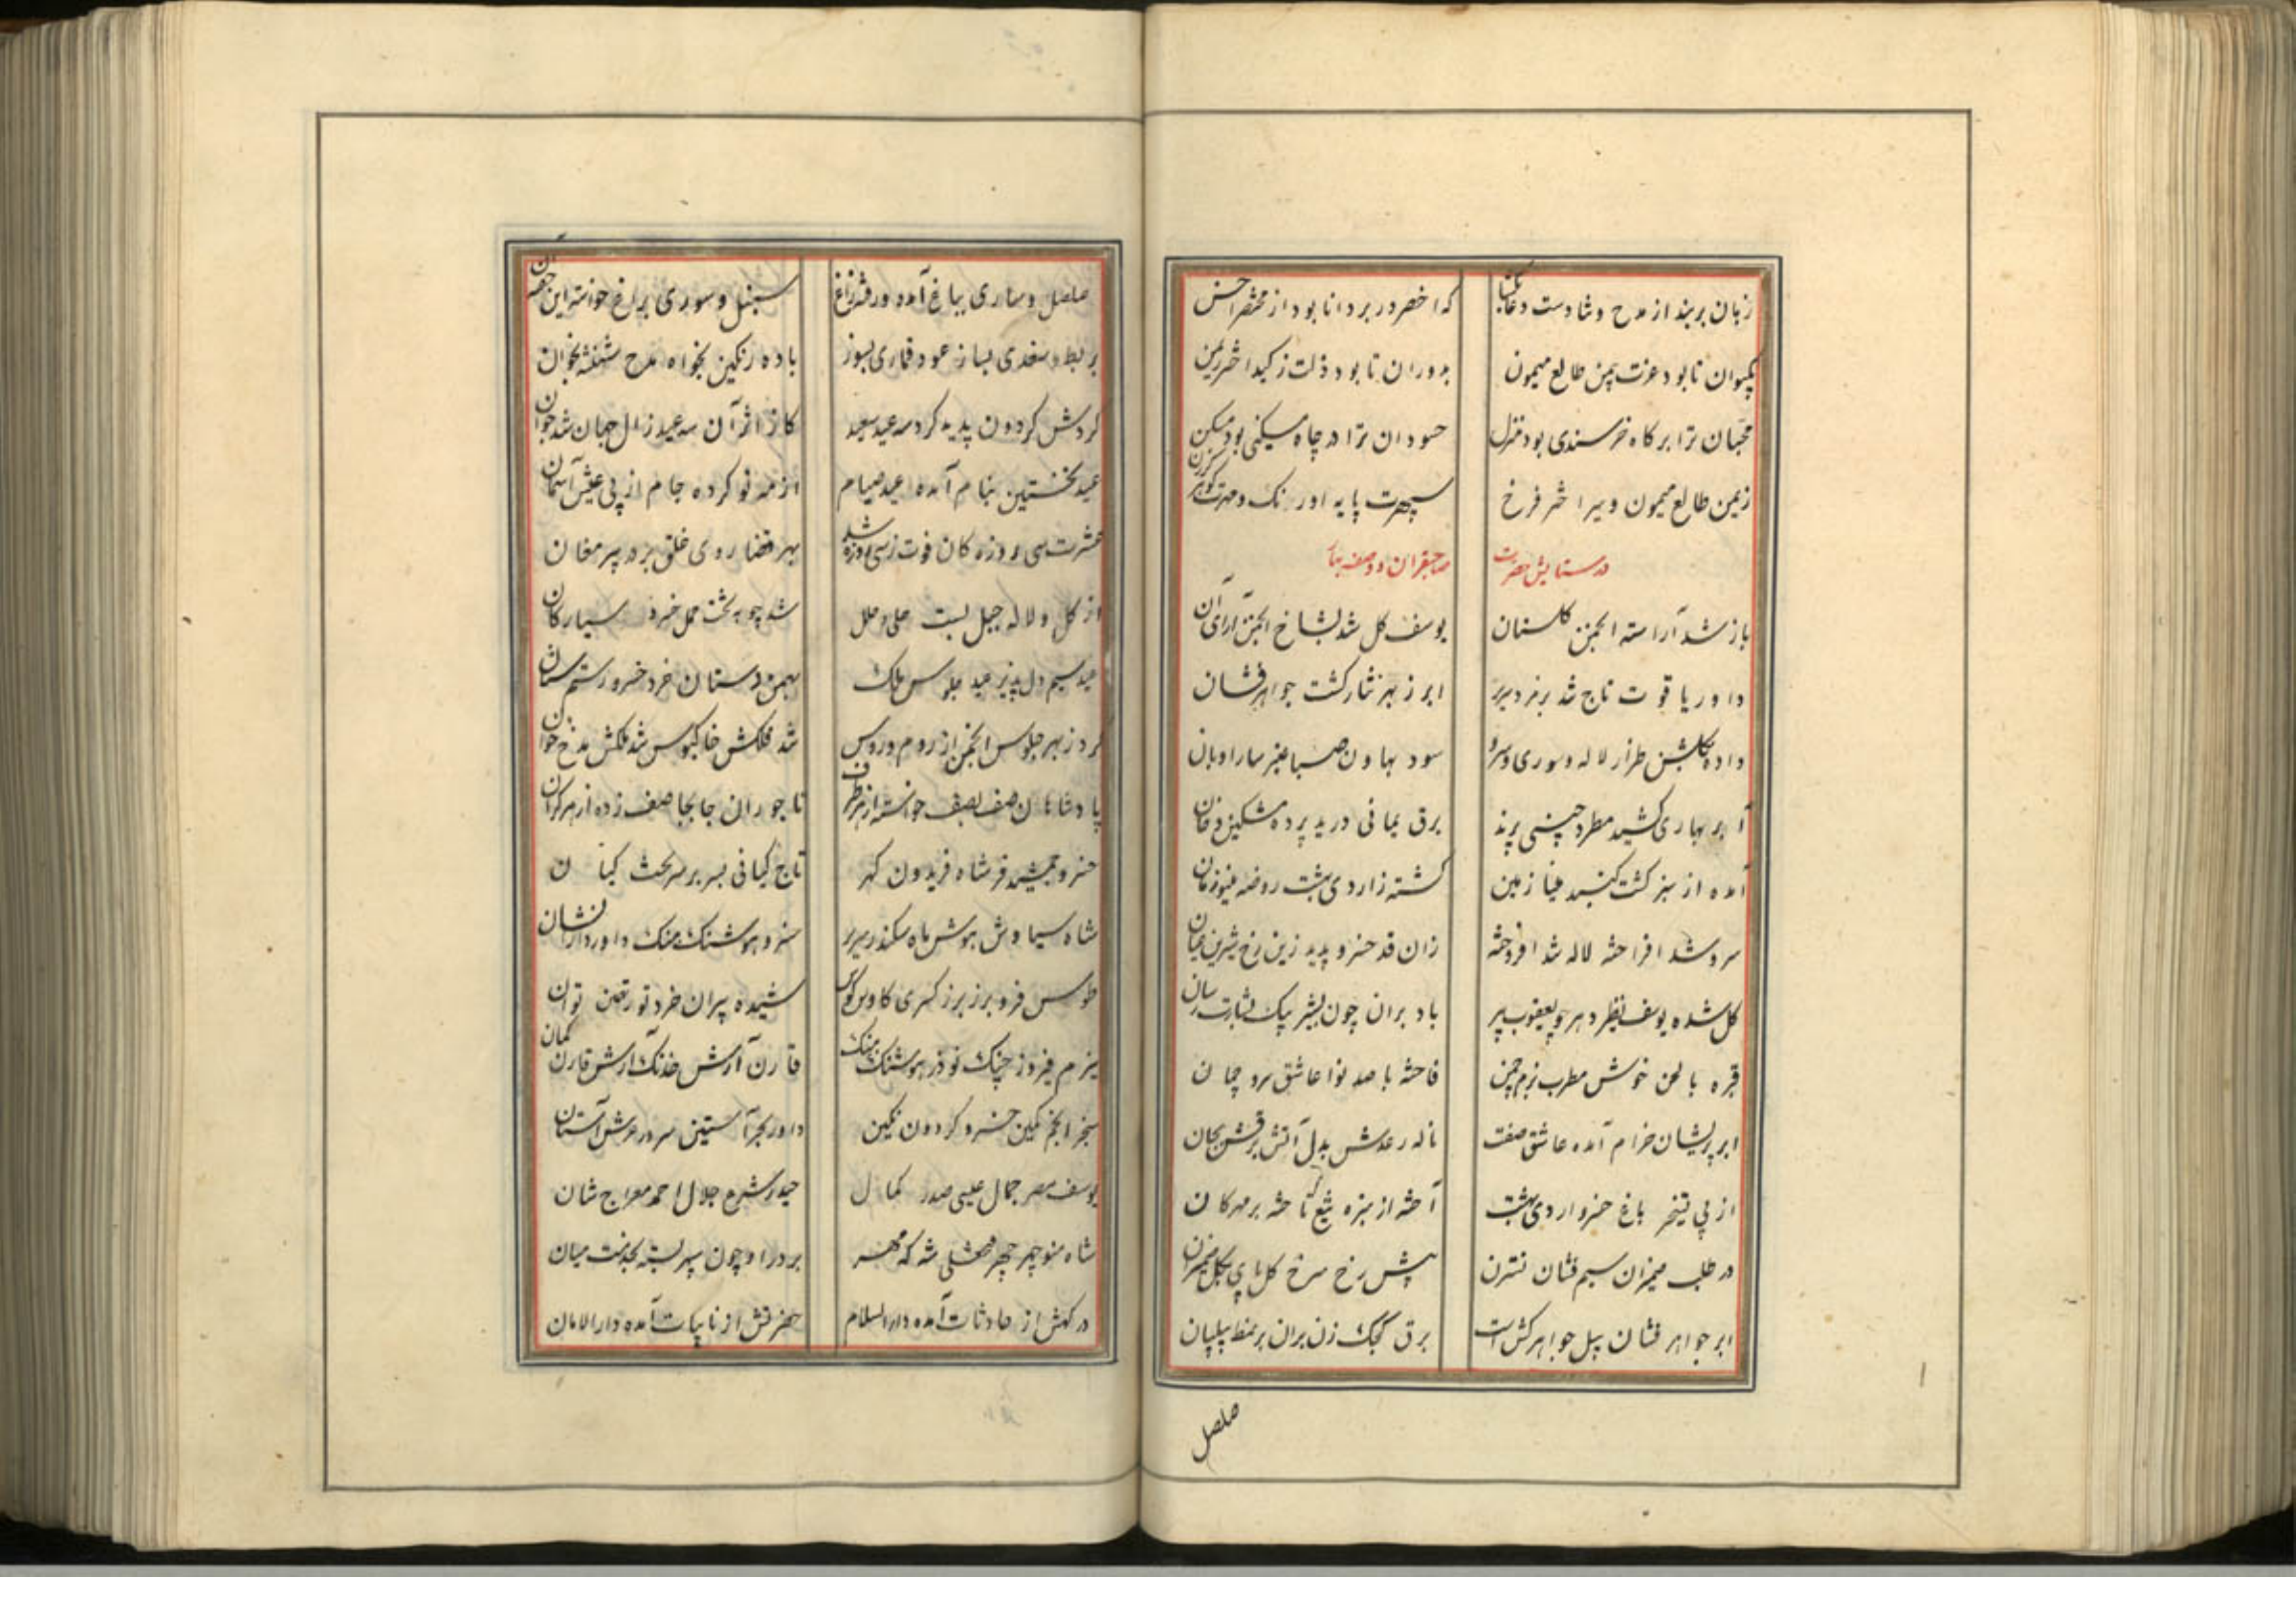 زبان بربند از مدح و ثنا دست دعا بگشا که اخضر در بر دانا بود از مختصر احسن
بگیوان تا بود عزت بیمن طالع میمون بدوران تا بود ذلت ز کید اختر ریمن
محبان ترا بر کاه خرسندی بود منزل حسودان ترا در چاه مسکینی بود مسکن
زیمن طالع میمون و سیر اختر فرخ سپهرت پایه اورنک و مهرت کوهر کرزن
در ستایش حضرت صاحبقران و وصف بهار
باز شد آراسته انجمن کلستان یوسف کل شد بشاخ انجمن آرای آن
داور یاقوت تاج شد بزمرد سریر ابر ز بهر نثار کشت جواهر فشان
داده بکلشن طراز لاله و سوری و سرو سود بهاون صبا عنبر سارا و بان
ابر بهاری کشید مطرد چینی پرند برق یمانی درید پرده مشکین دخان
آمده از سبزه کشت کنبد مینا زمین کشته ز اردی بهشت روضه مینو زمان
سرو شد افراخته لاله شد افروخته زان قد خسرو پدید زین رخ شیرین عیان
کل شده یوسف نظیر دهر چو یعقوب پیر باد بران چون بشیر پیک بشارت رسان
قبره با لحن خوش مطرب بزم چمن فاخته با صد نوا عاشق سرو چمان
ابر پریشان خرام آمده عاشق صفت ناله رعدش بدل آتش برقش بجان
از پی تسخیر باغ خسرو اردی بهشت آخته از سبزه تیغ تاخته بر مهرکان
در طلب میزان سیم فشان نسترن پیش رخ سرخ کل پای بکل ضیمران
ابر جواهر فشان پیل جواهر کش است برق کجک زن بران بر نمط پیلبان
صلصل
صلصل و ساری بباغ آمده و رفته زاغ سنبل و سوری براغ خواسته این جسته آن
بربط و سغدی بساز عود قماری بسوز باده رنکین بخواه مدح شهنشه بخوان
کردش کردون پدید کرد سه عید سعید کاز اثر آن سه عید زال جهان شد جوان
عید نخستین بنام آمده عید صیام از مه نو کرده جام از پی عیش آسمان
عشرت سی روزه کان فوت ز سی روزه شد بهر قضا روی خلق بر در پیر مغان
از کل و لاله جبل بست حلی و حلل شد چو به تخت حمل خسرو سیارکان
عید سیم دل پذیر عید جلوس ملک بهمن دستان خرد خسرو رستم ستان
کرد ز بهر جلوس انجمن از روم و روس شد فلکش خاکبوس شد ملکش مدح خوان
پادشاهان صف بصف خواسته از هر طرف تاجوران جابجا صف زده از هر کران
خسرو جمشید فر شاه فریدون کهر تاج کیانی بسر بر سر تخت کیان
شاه سیاوش هوش ماه سکندر سریر خسرو هوشنک هنک داور دارا نشان
طوس فر و برز برز کسری کاوس کوس شیده پیران خرد تور تهمتن توان
نیرم فیروز جنک نوذر هوشنک هنک قارن آرش خدنک آرش قارن کمان
سنجر انجم نکین خسرو کردون نکین داور بحر آستین سرور عرش آستان
یوسف مصر جمال عیسی صدر کمال حیدر شرع جلال احمد معراج شان
شاه منوچهر چهر فتحعلی شه که مهر بر در او چون سپهر بسته بخدمت میان
درکهش از حادثات آمده دارالسلام حضرتش از نایبات آمده دارالامان